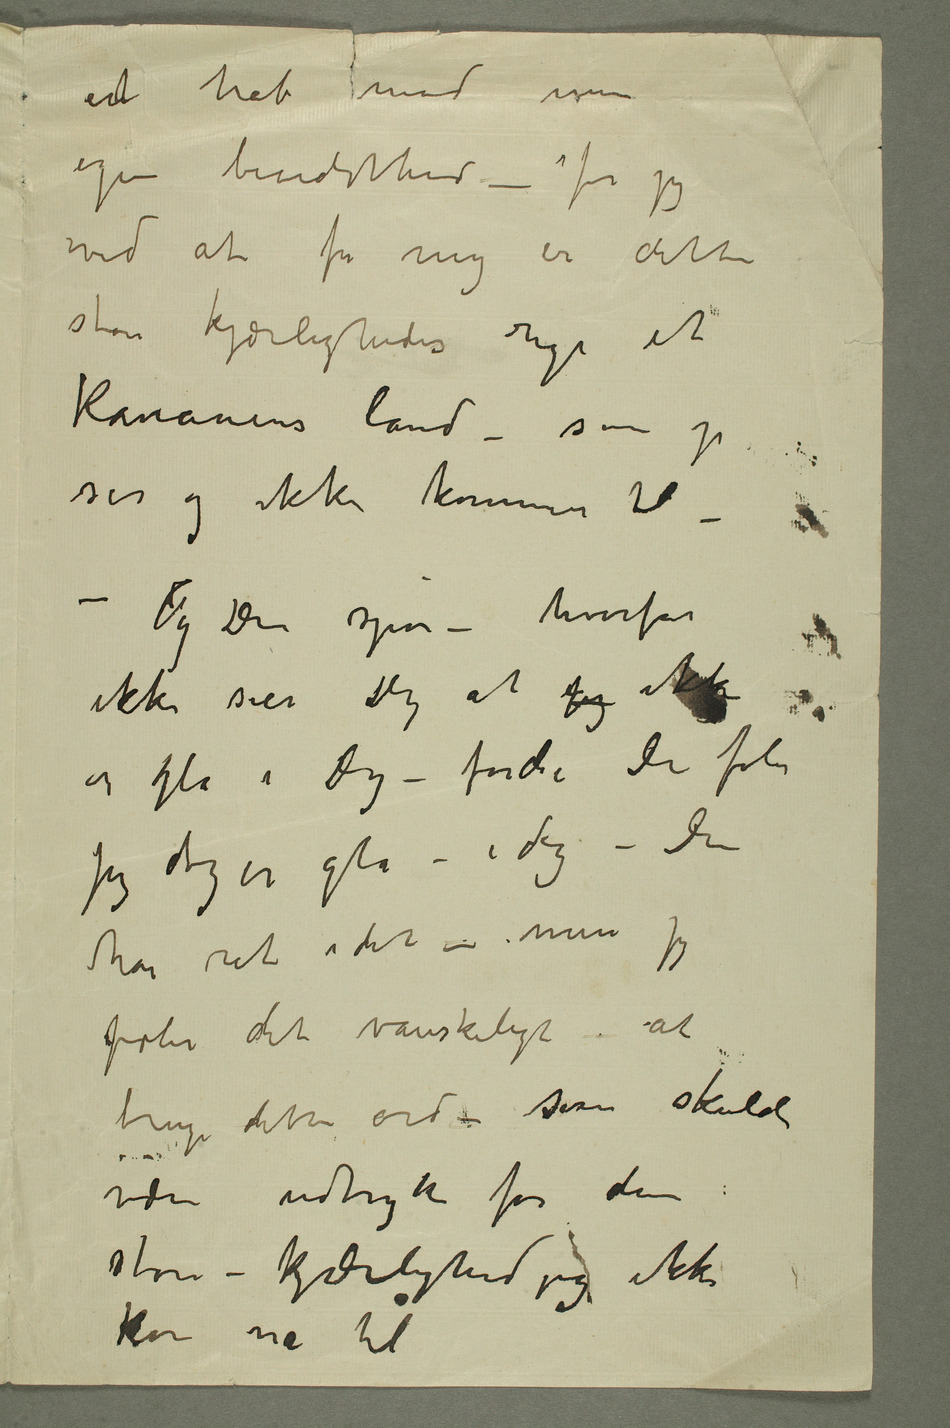 et hat mod min
egen bevidsthed – for jeg
ved at for mig er dette
store kjærlighedes rige et
Kanaanens land – som jeg
ser og ikke kommer til –
– Og Du spør – hvorfor
ikke sier Dig at jeg ikke
er gla i Dig – fordi Du føler
jeg dog er gla – i dig – Du
har ret i det – men jeg
føler det vanskeligt – at
bruge dette ord – som skulde
være udtryk for den
store – kjærlighed jeg ikke
kan nå til